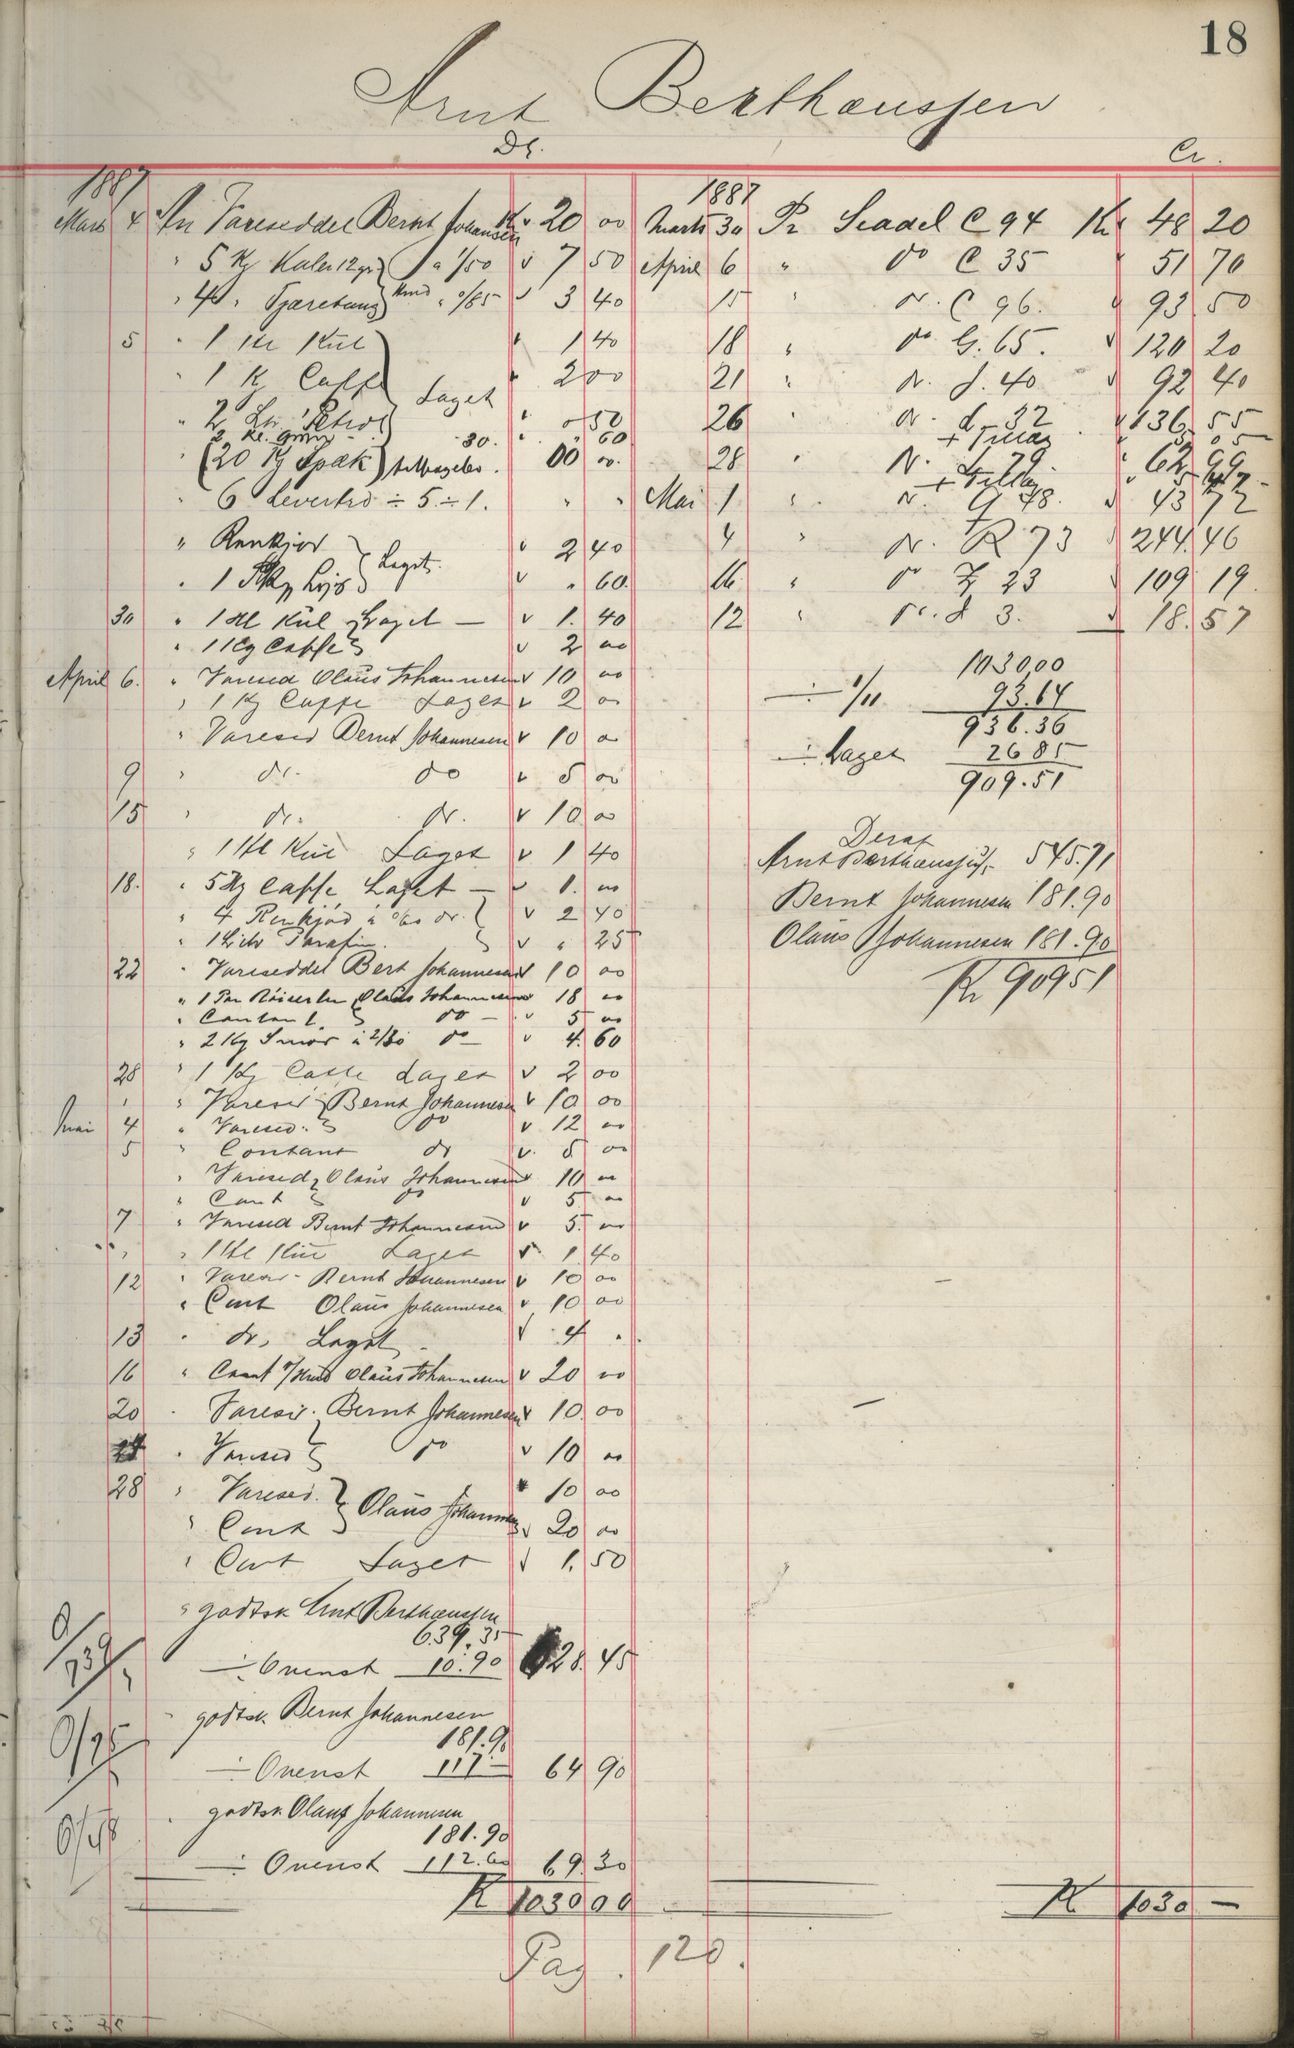 18
Arnt Berthaussen
Dr. Cr.
1887
Mars 4 An Vareseddel Bernt Johansen Kr 20 00
" 5 Kg Kaler 12 gr " 1/50 7 50
" 4 " Tjæretaug Knud " 0/85 3 40
5 " 1 Hl Kul 1 40
" 1 Kg Caffe Laget 2 00
" 2 Ltr Petrol " 50
2 Kl. 30. " 60
" (20 Kg Spæk) 00 00.
" 6 Levertrd ÷ 5 ÷ 1. " "
" Renkjør Laget 2 40
" 1 " 60
30 " 1 Hl Kul Laget — 1. 40
" 1 Kg Caffe 2 00
April 6. " Varesed Olaus Johannesen 10 00
" 1 Kg Caffe Laget 2 00
" Varesed Bernt Johannesen 10 00
9 " do. do 5 00
15 " do. do. 10 00
" 1 Hl Kul Laget 1 40
18. " 5 Hg Caffe Laget — 1. 00
" 4 Renkjød à 0/60 do. 2 40
" 1 Liter Parafin " 25
22 " Vareseddel Bert Johannesen 10 00
" 1 Par Olaus Johannesen 18 00
" Contant. do — 5 00
" 2 Kg Smør à 2/30 do — 4. 60
28 " 1 Kg Caffe Laget 2 00
" " Varesed Bernt Johannesen 10 00
Mai 4 " Varesed. do 12 00
5 " Contant do 5 00
" Varesed Olaus Johannesen 10 00
" Cont do 5 00
7 " Varesed Bernt Johannesen 5. 00
" " 1 Hl Kul Laget 1. 40
12 " Varesed. Bernt Johannesen 10 00
" Cont Olaus Johannesen 10 00
13 " do. Laget 4 "
16 " Cont Olaus Johannesen 20 00
20 " Varesed. Bernt Johannesen 10. 00
" Varesed do 10 00
28 " Varesed. 10 00
" Cont Olaus Johannesen 20 00
" Cont Laget 1. 50
" godtsk Arnt Berthaussen
639.35
÷ Ovenst 10.90 628. 45
godtsk Bernt Johannesen
181.90
÷ Ovenst 117 — 64 90
godtsk Olaus Johannesen
181.90
÷ Ovenst 112.60 69. 30
K 1030 00
1887
Marts 30 Pr Seddel C 94 Kr 48 20
April 6 " do C 35 51 70
15 " do. C 96. 93. 50
18 " do G. 65. 120 20
21 " do. J. 40 92 40
26 " do. d. 32 136. 55
+ Tillæg
28 " do. 62. 99
+ Tillæg
Mai 1 " do. 48. 43 72
4 " do. R 73 244. 46
" do Z 23 109 19.
12 " do. d 3. 18. 57
1030,00
÷ 1/11 93.64
936.36
÷ Laget 26 85
909.51
Deraf
Arnt Berthaussen 545.71
Bernt Johannesen 181.90
Olaus Johannesen 181.90
Kr 909 51
K 1030 —
Pag. 120.